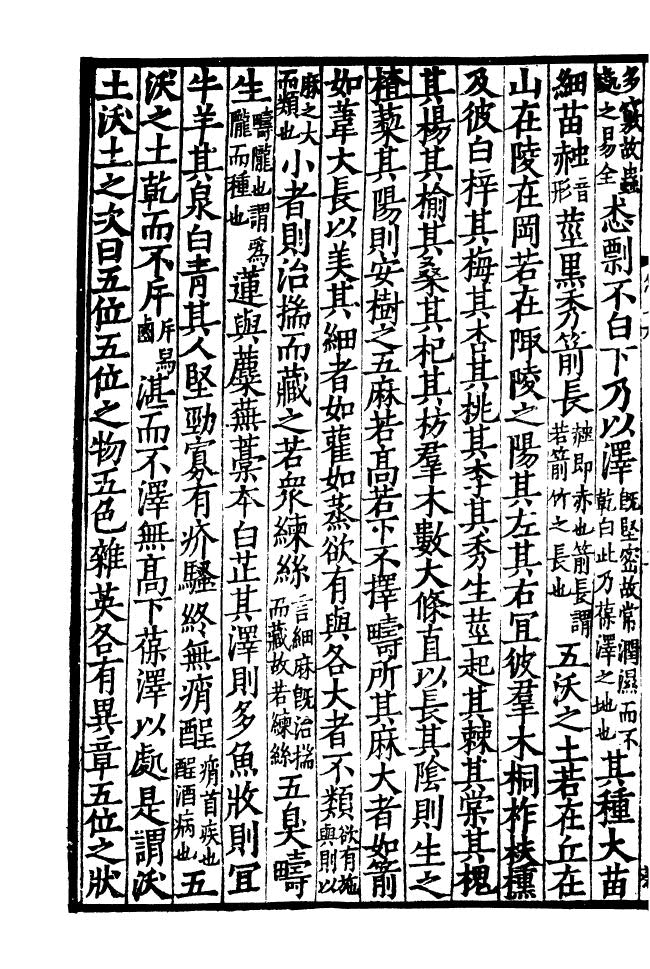 多竅故蟲處之易全忝剽不白下乃以澤既堅密故常潤濕而不乾白此乃葆澤之地也其種大苗
細苗赨音形莖黑秀箭長赨即赤也箭長謂若箭竹之長也五沃之土若在丘在
山在陵在岡若在陬陵之陽其左其右宜彼羣木桐柞枎櫄
及彼白梓其梅其杏其桃其李其秀生莖起其棘其棠其槐
其楊其榆其桑其杞其枋羣木數大條直以長其陰則生之
楂蔾其陽則安樹之五麻若高若下不擇疇所其麻大者如箭
如葦大長以美其細者如雚如蒸欲有與各大者不類欲有施與則以
麻之大而類也小者則治揣而藏之若衆練絲言細麻既治揣而藏故若練絲五臭疇
生疇隴也謂為隴而種也蓮與蘪蕪藁本白芷其澤則多魚牧則宜
牛羊其泉白青其人堅勁寡有疥騷終無痟酲痟首疾也酲酒病也五
沃之土乾而不斥斥舄鹵湛而不澤無高下葆澤以處是謂沃
土沃土之次曰五位五位之物五色雜英各有異章五位之狀